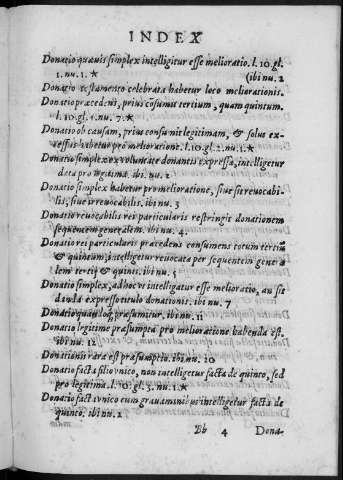 INDEX
Donatio quauis simplex intelligitur esse melioratio. l. 10. gl.
1. nu. 1. ★ (ibi nu. 2
Donatio testamento celebrata habetur loco meliorationis.
Donatio præcedens, prius cōsumit tertium, quam quintum.
l. 10. gl. 1. nu. 7. ★
Donatio ob causam, prius consumit legitimam, & solus ex-
pressus habetur pro melioratione. l. 10. gl. 2. nu. 1. ★
Donatio simplex ex voluntate donantis expressa, intelligitur
data pro legitima. ibi nu. 2
Donatio simplex habetur pro melioratione, siue sit reuocabi-
lis, siue irreuocabilis. ibi nu. 3
Donatio reuocabilis rei particularis restringit donationem
sequentem generalem. ibi nu. 4.
Donatio rei particularis præcedens consumens totum tertiū
& quintum, intelligitur reuocata per sequentem genera
lem tertij & quinti. ibi nu. 5
Donatio simplex, ad hoc vt intelligatur esse melioratio, an sit
danda expresso titulo donationis. ibi nu. 7
Donatio quando præsumitur. ibi nu. 11
Donatio legitime præsumpta pro melioratione habenda est.
ibi nu. 12
Donatio nō rata est præsumptio. ibi nu. 20
Donatio facta filio vnico, non intelligetur facta de quinto, sed
pro legitima. l. 10. gl. 3. nu. 1. ★
Donatio facta vnico cum grauamini pr intelligetur facta de
quinto. ibi nu. 2
Bb 4 Dona-